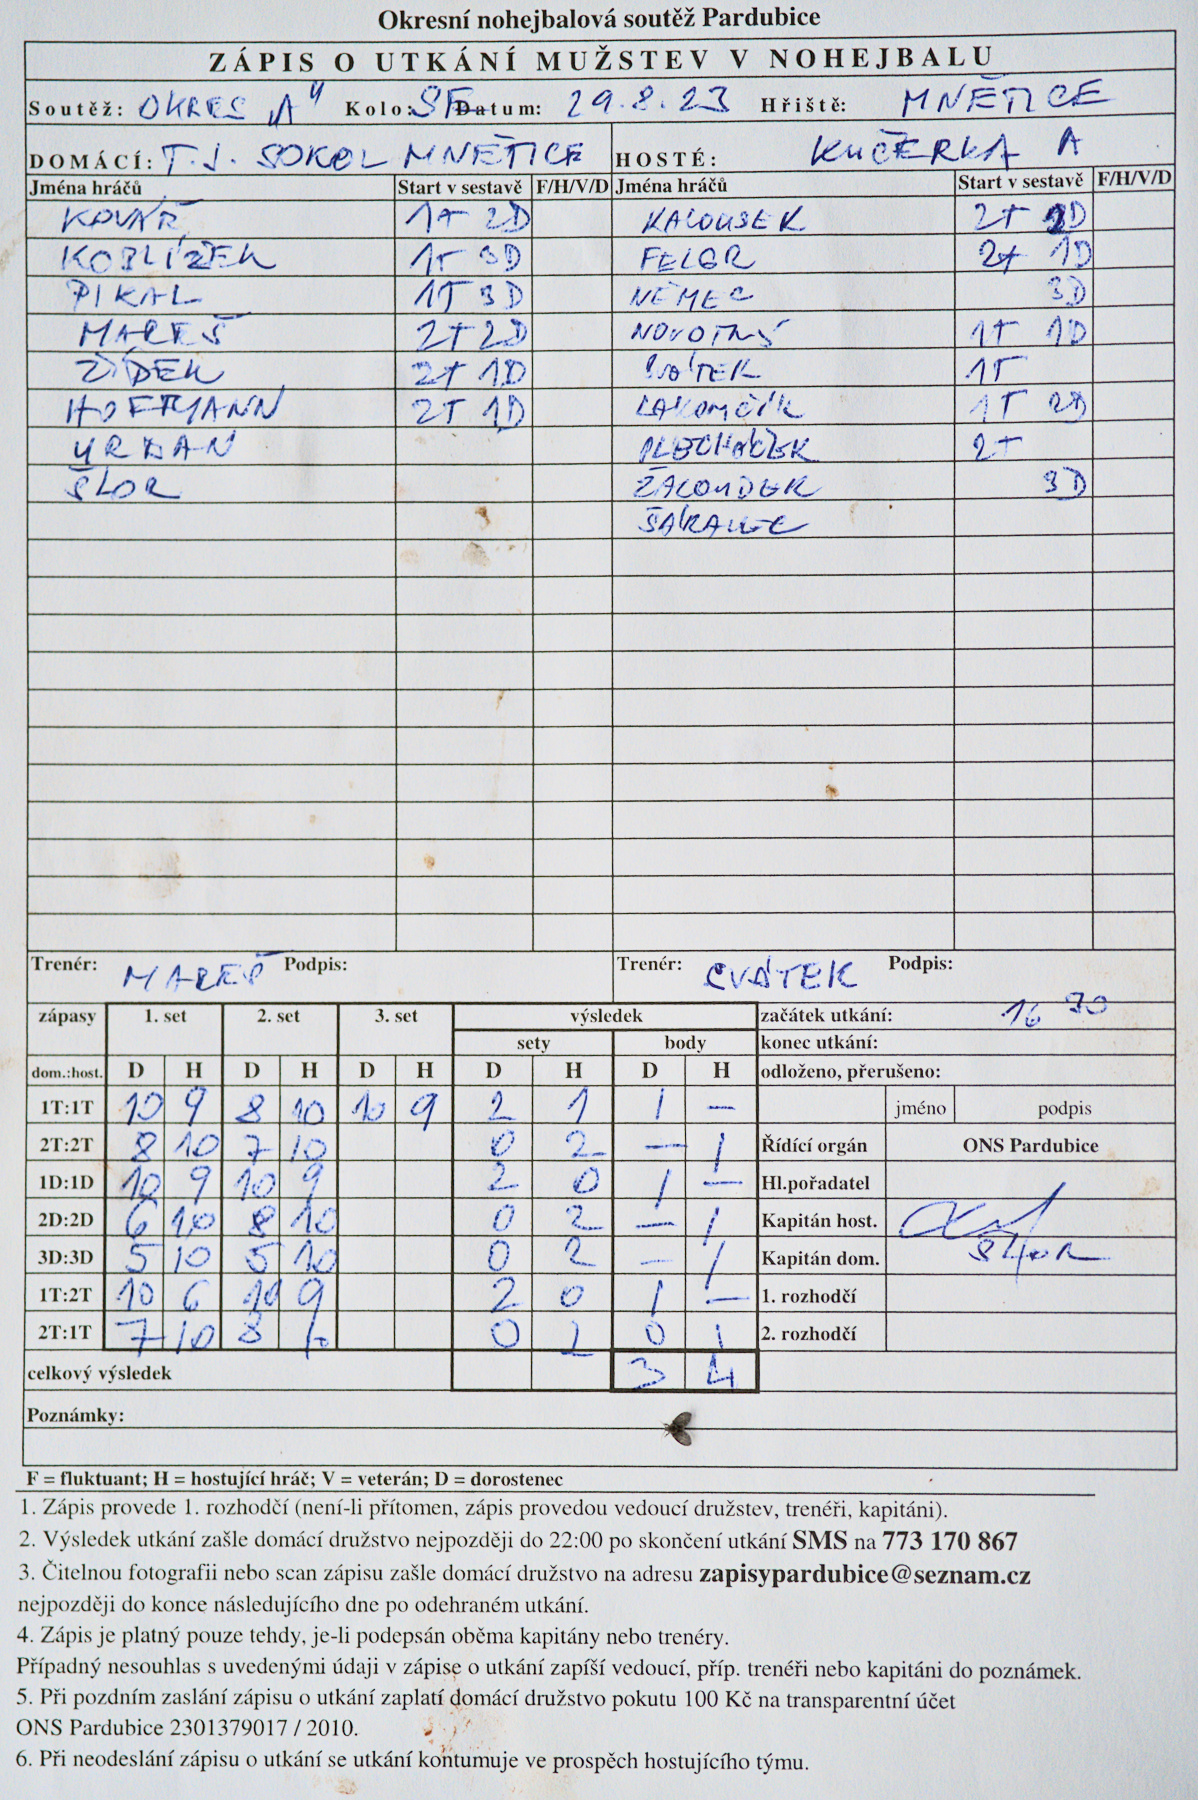 Okresní nohejbalová soutěž Pardubice
ZÁPIS O UTKÁNÍ MUŽSTEV V NOHEJBALU
Soutěž: OKRES „A" Kolo: SF Datum: 29.8.23 Hřiště: MNĚTICE
DOMÁCÍ: T.J. SOKOL MNĚTICE HOSTÉ: KUČERKA A
Jména hráčů Start v sestavě F/H/V/D Jména hráčů Start v sestavě F/H/V/D
KOVÁŘ 1T 2D KALOUSEK 2T 2D
KOBLÍŽEK 1T 3D FELGR 2T 1D
PIKAL 1T 3D NĚMEC 3D
MAREŠ 2T 2D NOVOTNÝ 1T 1D
ZÍDEK 2T 1D SVÁTEK 1T
HOFMANN 2T 1D LAKOMČÍK 1T 2D
URBAN PLECHÁČEK 2T
ŠLOR ŽALOUDEK 3D
Trenér: MAREŠ Podpis: Trenér: SVÁTEK Podpis:
zápasy 1. set 2. set 3. set výsledek začátek utkání: 16 30
sety body konec utkání:
dom.:host. D H D H D H D H D H odloženo, přerušeno:
1T:1T 10 9 8 10 10 9 2 1 1 – jméno podpis
2T:2T 8 10 7 10 0 2 – 1 Řídící orgán ONS Pardubice
1D:1D 10 9 10 9 2 0 1 – Hl.pořadatel
2D:2D 6 10 8 10 0 2 – 1 Kapitán host.
3D:3D 5 10 5 10 0 2 – 1 Kapitán dom. ŠLOR
1T:2T 10 6 10 9 2 0 1 – 1. rozhodčí
2T:1T 7 10 8 10 0 2 0 1 2. rozhodčí
celkový výsledek 3 4
Poznámky:
F = fluktuant; H = hostující hráč; V = veterán; D = dorostenec
1. Zápis provede 1. rozhodčí (není-li přítomen, zápis provedou vedoucí družstev, trenéři, kapitáni).
2. Výsledek utkání zašle domácí družstvo nejpozději do 22:00 po skončení utkání SMS na 773 170 867
3. Čitelnou fotografii nebo scan zápisu zašle domácí družstvo na adresu zapisypardubice@seznam.cz
nejpozději do konce následujícího dne po odehraném utkání.
4. Zápis je platný pouze tehdy, je-li podepsán oběma kapitány nebo trenéry.
Případný nesouhlas s uvedenými údaji v zápise o utkání zapíší vedoucí, příp. trenéři nebo kapitáni do poznámek.
5. Při pozdním zaslání zápisu o utkání zaplatí domácí družstvo pokutu 100 Kč na transparentní účet
ONS Pardubice 2301379017 / 2010.
6. Při neodeslání zápisu o utkání se utkání kontumuje ve prospěch hostujícího týmu.